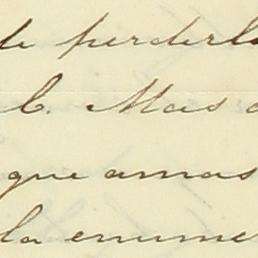 de perderl
b. Mas
que amas
la enume